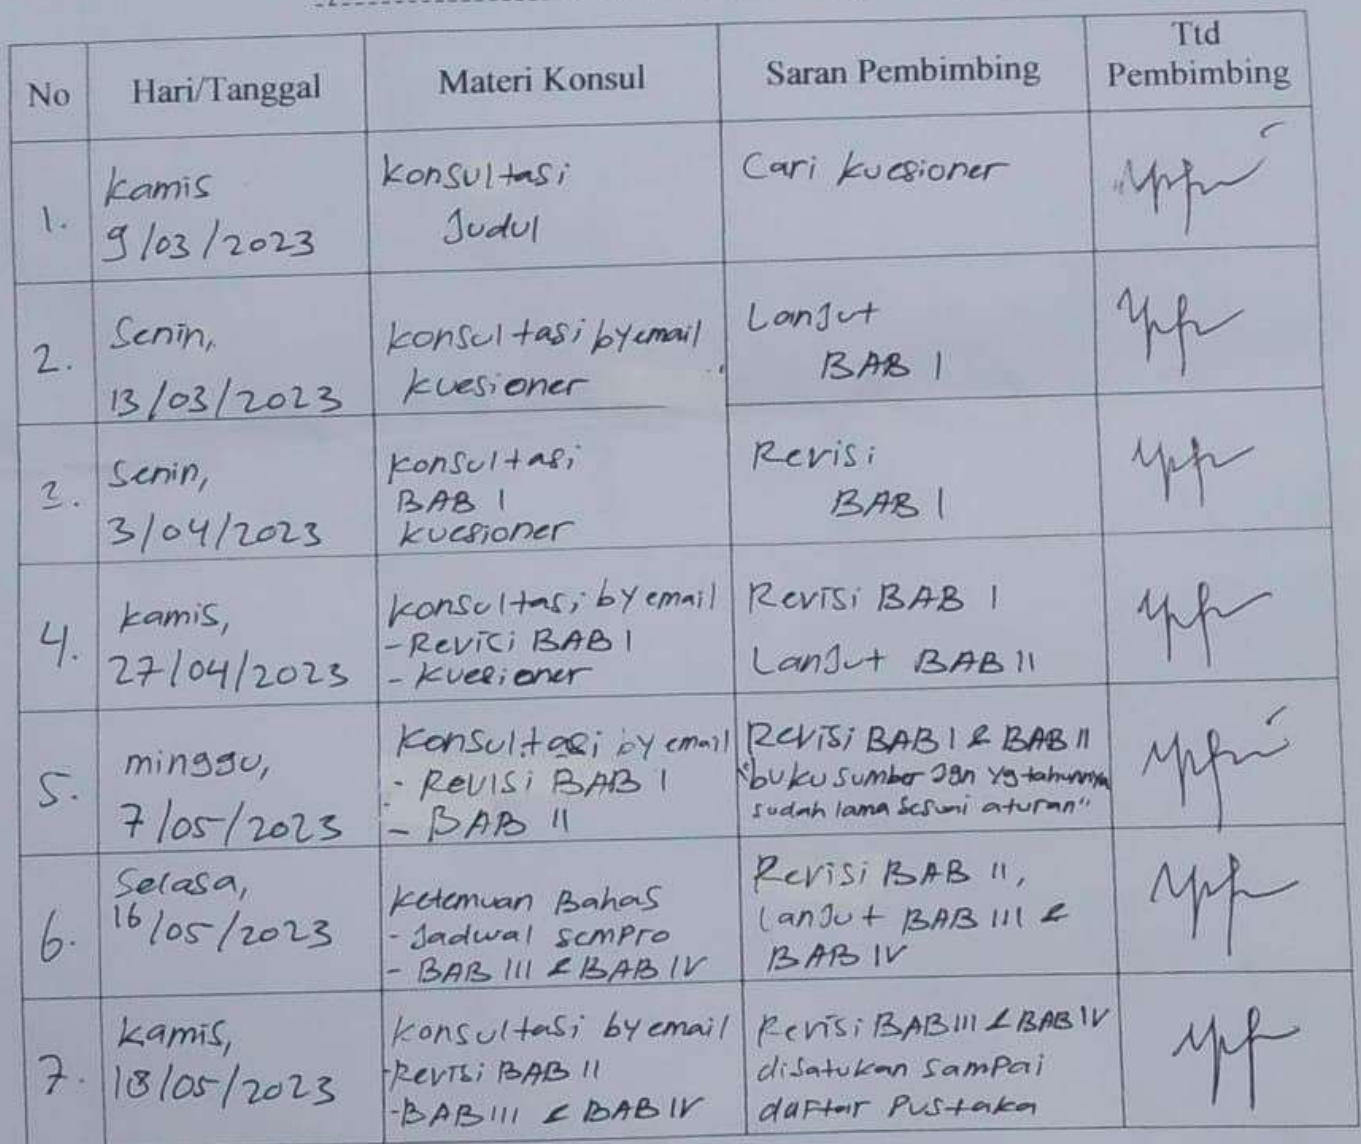 No
Hari/Tanggal
Materi Konsul
Saran Pembimbing
Ttd
Pembimbing
1.
Kamis
9/03/2023
Konsultasi
Judul
Cari kuesioner
2.
Senin,
13/03/2023
Konsultasi by email
kuesioner
Lanjut
BAB I
3.
Senin,
3/04/2023
Konsultasi
BAB I
kuesioner
Revisi
BAB I
4.
Kamis,
27/04/2023
Konsultasi by email
- Revisi BAB I
- Kuesioner
Revisi BAB I
Lanjut BAB II
5.
minggu,
7/05/2023
Konsultasi by email
- Revisi BAB I
- BAB II
Revisi BAB I & BAB II
"buku sumber Jgn yg tahunnya
sudah lama sesuai aturan"
6.
Selasa,
16/05/2023
Ketemuan Bahas
- Jadwal sempro
- BAB III & BAB IV
Revisi BAB II,
Lanjut BAB III &
BAB IV
7.
Kamis,
18/05/2023
Konsultasi by email
- Revisi BAB II
- BAB III & BAB IV
Revisi BAB III & BAB IV
disatukan sampai
daftar Pustaka